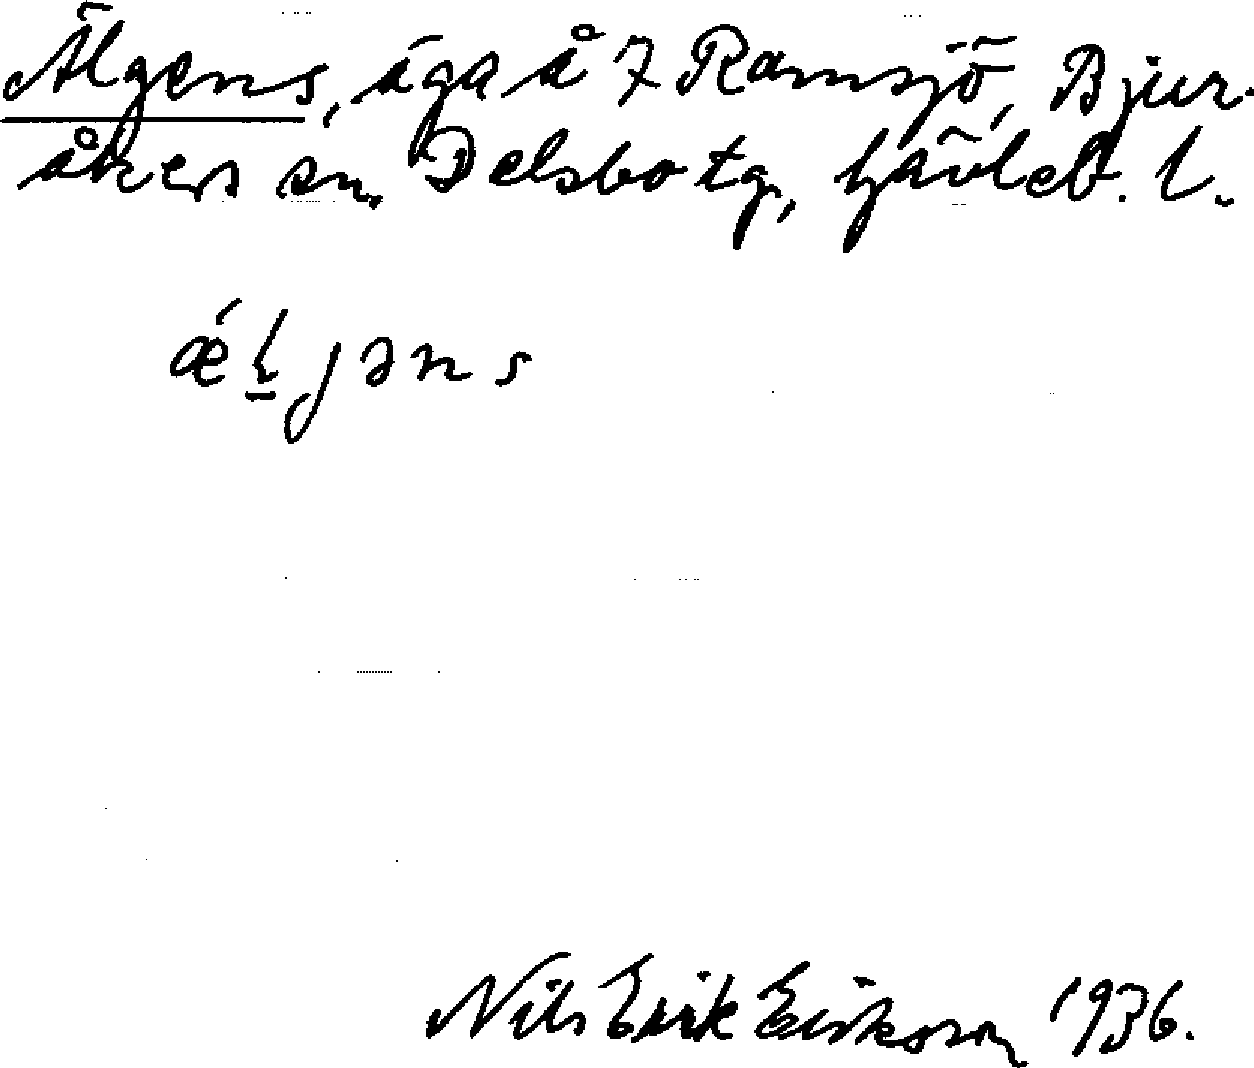 Älgens, äga å 7 Ramsjö, Bjur-
åkers sn, Delsbo tg, Gävleb. l.
ǽl̠jəns
Nils Erik Eriksson 1936.